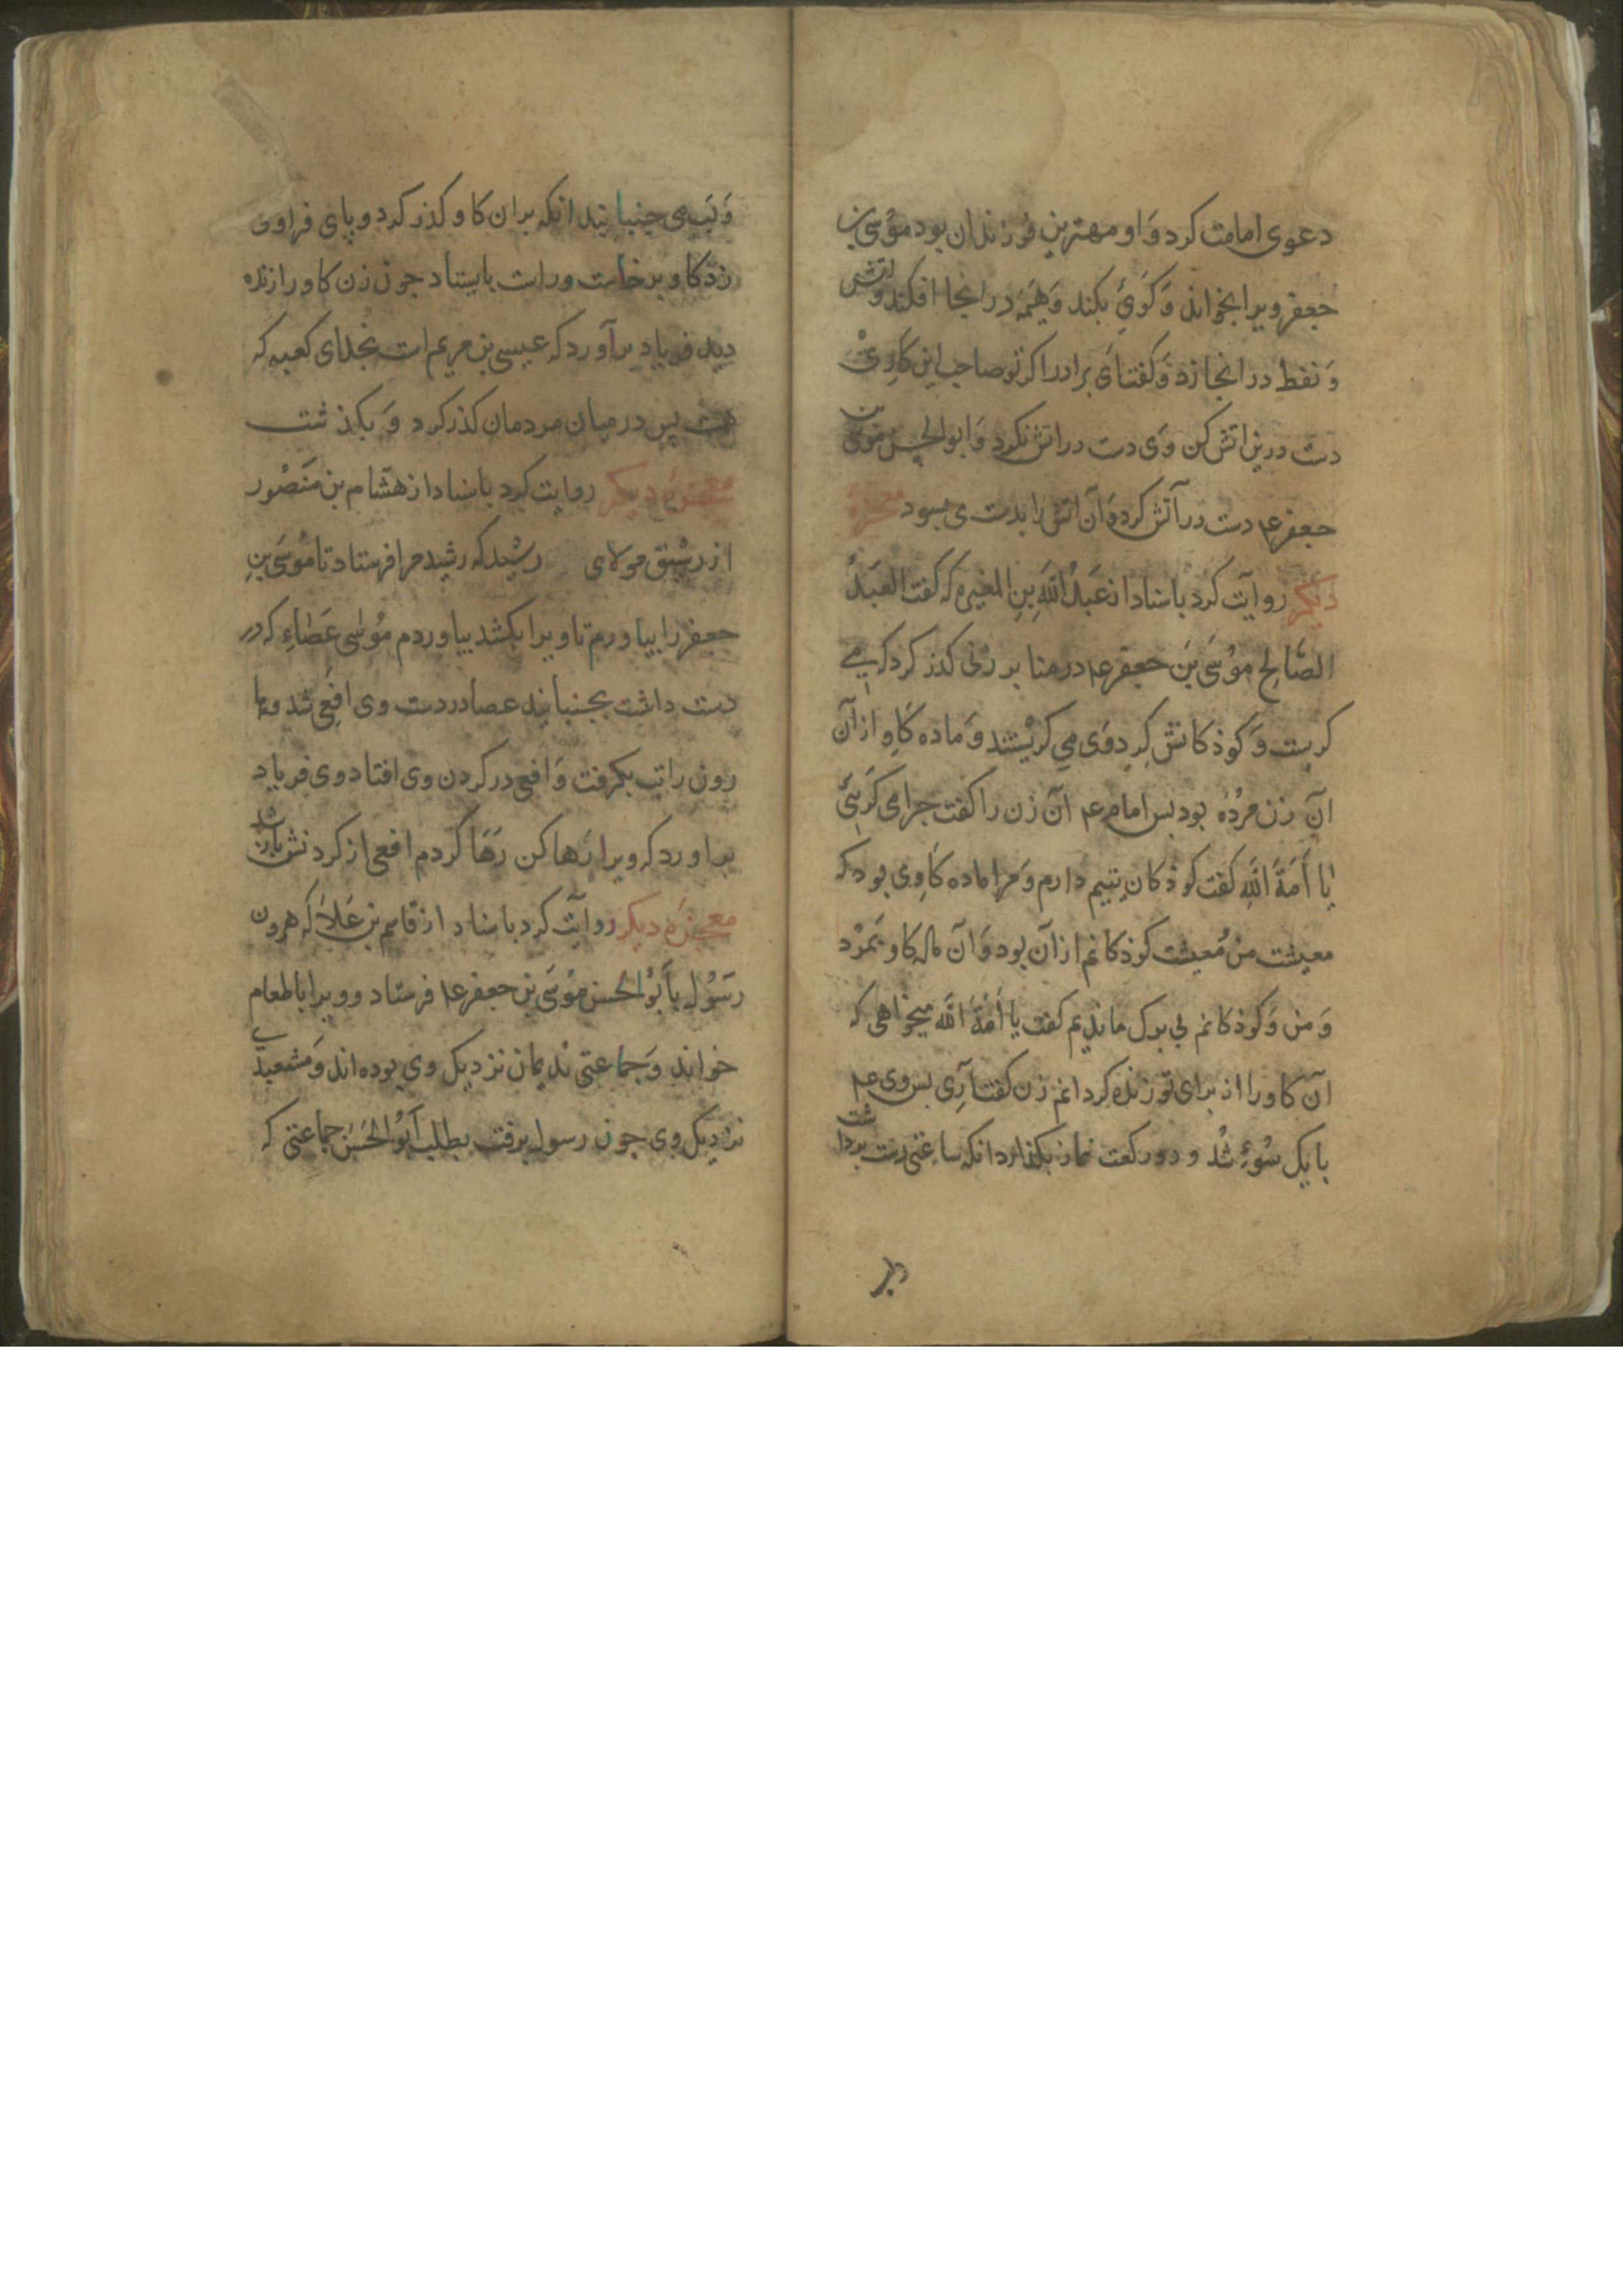 دعوی امامت کرد وَ او مهترینِ فرزندان بود موُسی بن
جعفر ویرا بخواند وَ کَوَیِ بکند وَ هیمَه در انجا افکند و اتش
وَ نفط در انجا زد وَ کفت اَی برادر اکر تو صاحب این کارِیْ
دست درین اتش کن وَی دست در اتش نکرد وَ ابو الحسن موسی بن
جعفر ع۱ دست در آتش کرد وَ آن اتش را بدست می بسود معجزهٔ
دیکر روایت کرد باسناد از عَبدُ اللهَ بِنِ المغیره که کفت العَبدُ
الصَّالح موُسَی بنَ جعفر ع۱ در منا بر زنی کذر کرد که می
کریست وَ کوذکانش کردِ وَی می کریْستند وَ ماده کاوِ از آن
آن زن مرُدهٔ بود بس امام ع۱ آن زن را کفت جرا می کریی
یا أَمَةَ اللهِ کفت کوذکان یتیم دارم وَ مرا ماده کاوِی بود که
معیشت من وَ معیشت کوذکانم از آن بود وَ آن ماده کاو بمرُد
وَ من وَ کوذکانم بی برک ماندیم کفت یا أَمَةَ اللهَ میخواهی که
آن کاو را از برای تو زنده کردانم زن کفت آرِی بس وی ع۱
با یک سُویِ شُد و دو رکعت نماز بکذارد انکه ساعتی دست برداشت
وَ لَب می جنبانید انکه بران کاو کذر کرد و پای فراوی
زذ کاو برخاست و راست بایستاد جون زن کاو را زنده
دید فریاد برآورد که عیسی بن مریم است بخدای کعبه که
پس در میان مردمان کذر کرد وَ بکذشت
معجزهٔ دیکر روایت کرد باسناد از هشام بن مَنصُور
از رشیق مولای رشید که رشید مرا فرستاد تا موُسَی بنِ
جعفر را بیاورم تا ویرا بکشد بیاوردم موُسٰی عَصَاءِ که در
دست داشت بجنبانید عصا در دست وی افعِی شد و
رون را تب بکرفت وَ افعی در کردن وی افتاد و وی فریاد
براورد که ویرا رَها کن رَهَا کردم افعی از کردنش باز شد
معجزهٔ دیکر روایَت کرد باسناد از قاسم بن عَلاَ که هرون
رَسُول بأَبُو الحسن موُسَی بن جعفر ع۱ فرستاد و ویرا با طعام
خواند وَ جماعتی ندیمان نزدیک وی بوده اند وَ مشعبدی
نزدیک وی جون رسول برفت بطلب اَبُو الحَسَن جماعتی که